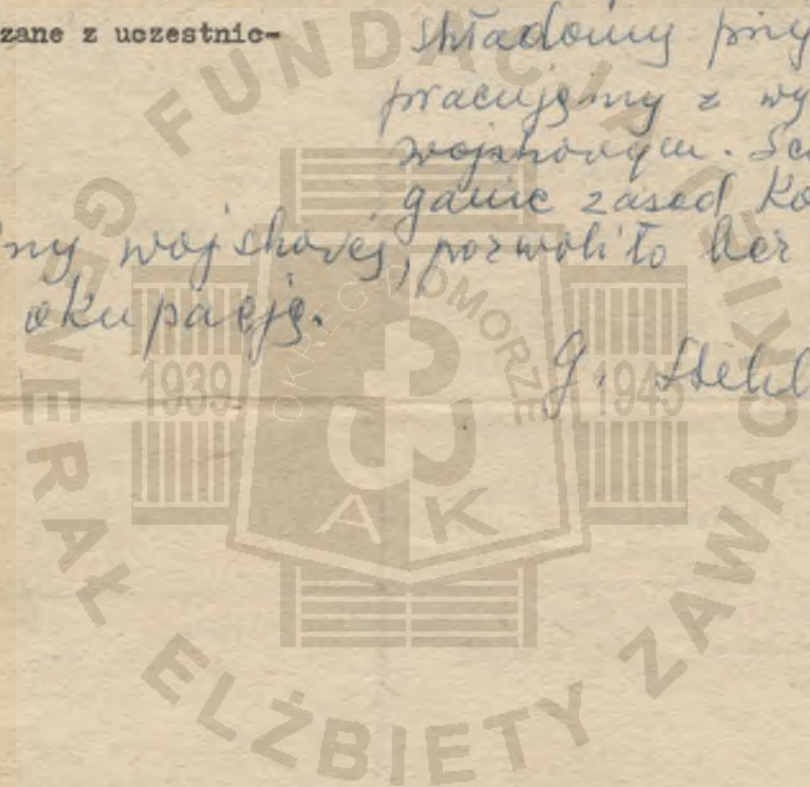 zane z uczestnic-
składamy przy
pracujemy z wy
wojskowym.
ganie zasad Ko
ny wojskowej, pozwoliło
okupację.
FUNDACJA GENERAŁ ELŻBIETY ZAWACKIEJ
OKRĘG POMORZE
1939
1945
AK